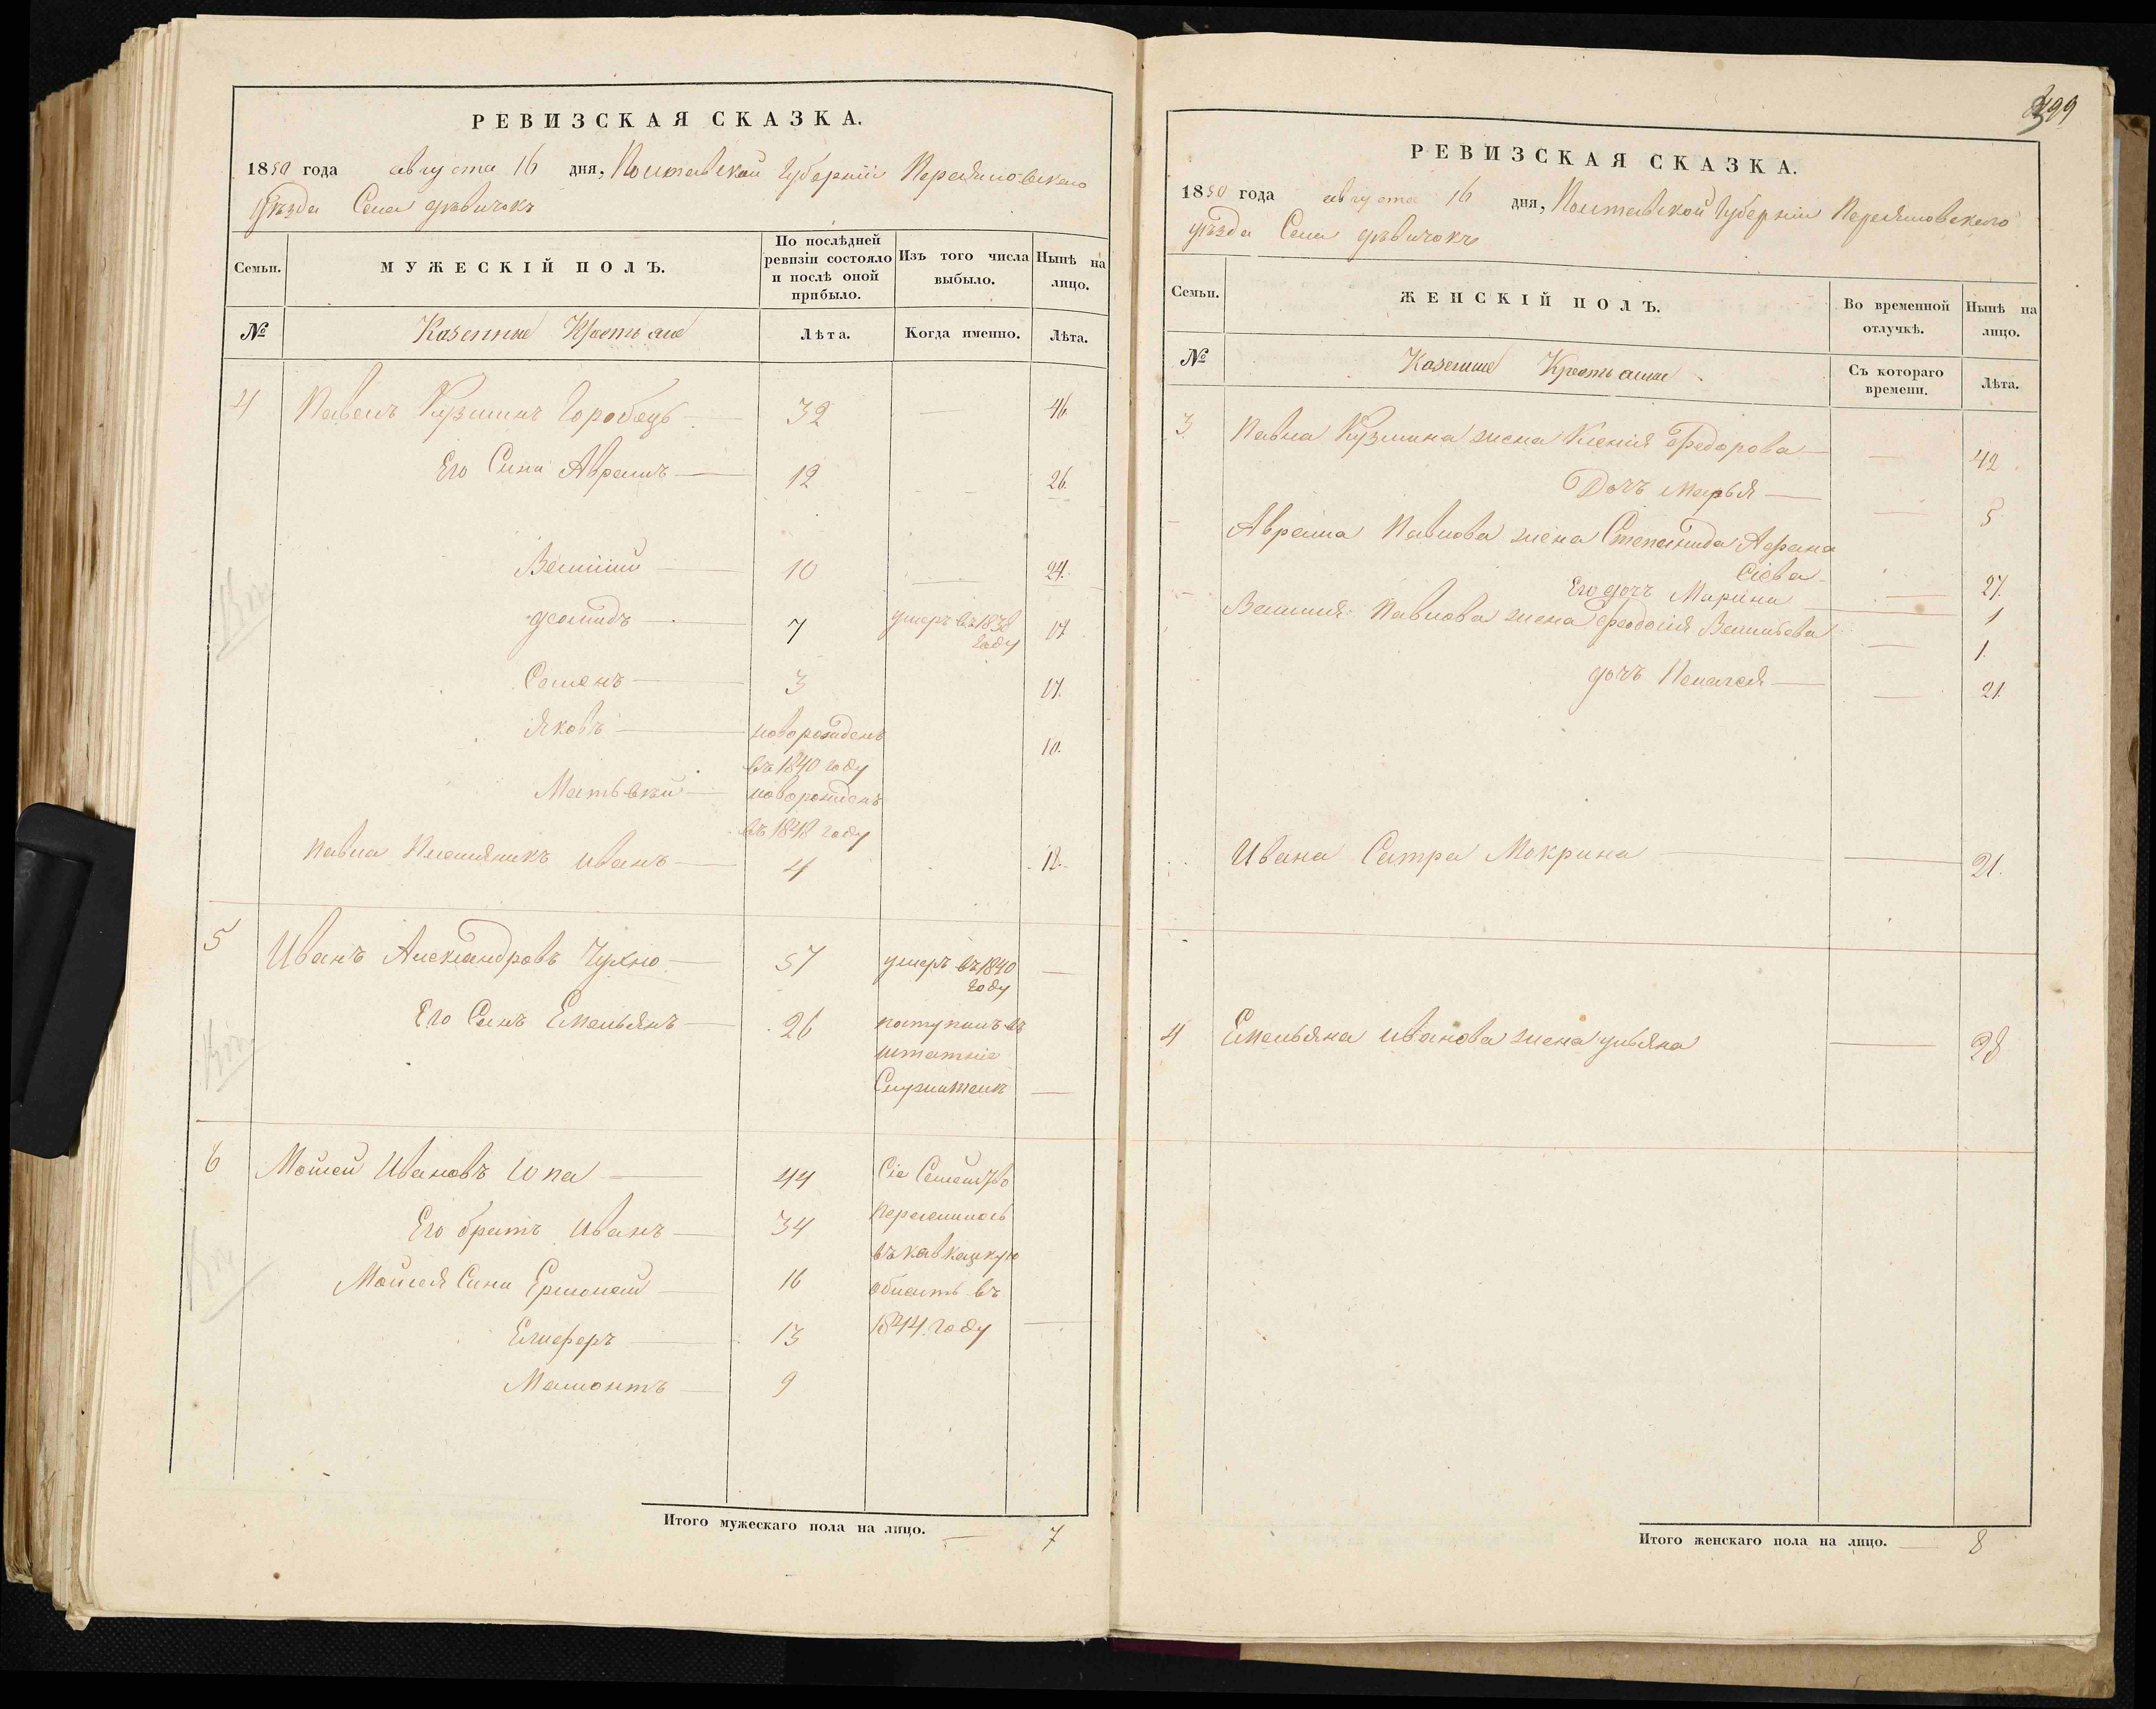 РЕВИЗСКАЯ СКАЗКА.
1850 года августа 16 дня, Полтавской Губерніи Переяславского
Уѣзда Села дѣвичокъ
Семьи.
МУЖЕСКІЙ ПОЛЪ.
По послѣдней
ревизіи состояло
и послѣ оной
прибыло.
Изъ того числа
выбыло.
Нынѣ на
лицо.
№
Казенные Крестьяне
Лѣта.
Когда именно.
Лѣта.
4 Павелъ Кузминъ Горобець 32 46.
Его Сини Аврамъ 12 26.
10 24.
7 умеръ въ 1838 17
году
Семенъ 3 17.
Яковъ новорожденъ 10.
въ 1840 году
Матьвѣй новорожденъ
въ 1848 году
Павла Племяникъ иванъ 4 18.
5 Иванъ Александровъ Чухно 57 умеръ въ 1840
году
Его Синъ Емельянъ 26 поступилъ въ
штатніе
6 Мойсей Ивановъ Юпа 44 Сіе Семейство
Его братъ Иванъ 34 переселилось
въ кавказкую
Мойсея Сини Ермолай 16 область въ
Елиферъ 13 1844. году
Мамонтъ 9
Итого мужескаго пола на лицо. 7
399
РЕВИЗСКАЯ СКАЗКА.
1850 года августа 16 дня, Полтавской Губерніи Переяславского
уѣзда Села дѣвичокъ
Семьи.
ЖЕНСКІЙ ПОЛЪ.
Во временной
отлучкѣ.
Нынѣ на
лицо.
№
Казенные Крестьяне
Съ котораго
времени.
Лѣта.
3 Павла Кузмина жена Ксенія Федорова 42
Дочъ Марья 5
Аврама Павлова жена Степанида Афана
сіева 27.
Его дочъ Марина 1
Павлова жена Феодосія 1.
дочъ Пелагея 21.
Ивана Сестра Мокрина 21.
4 Емельяна иванова жена ульяна 28
Итого женскаго пола на лицо. 8